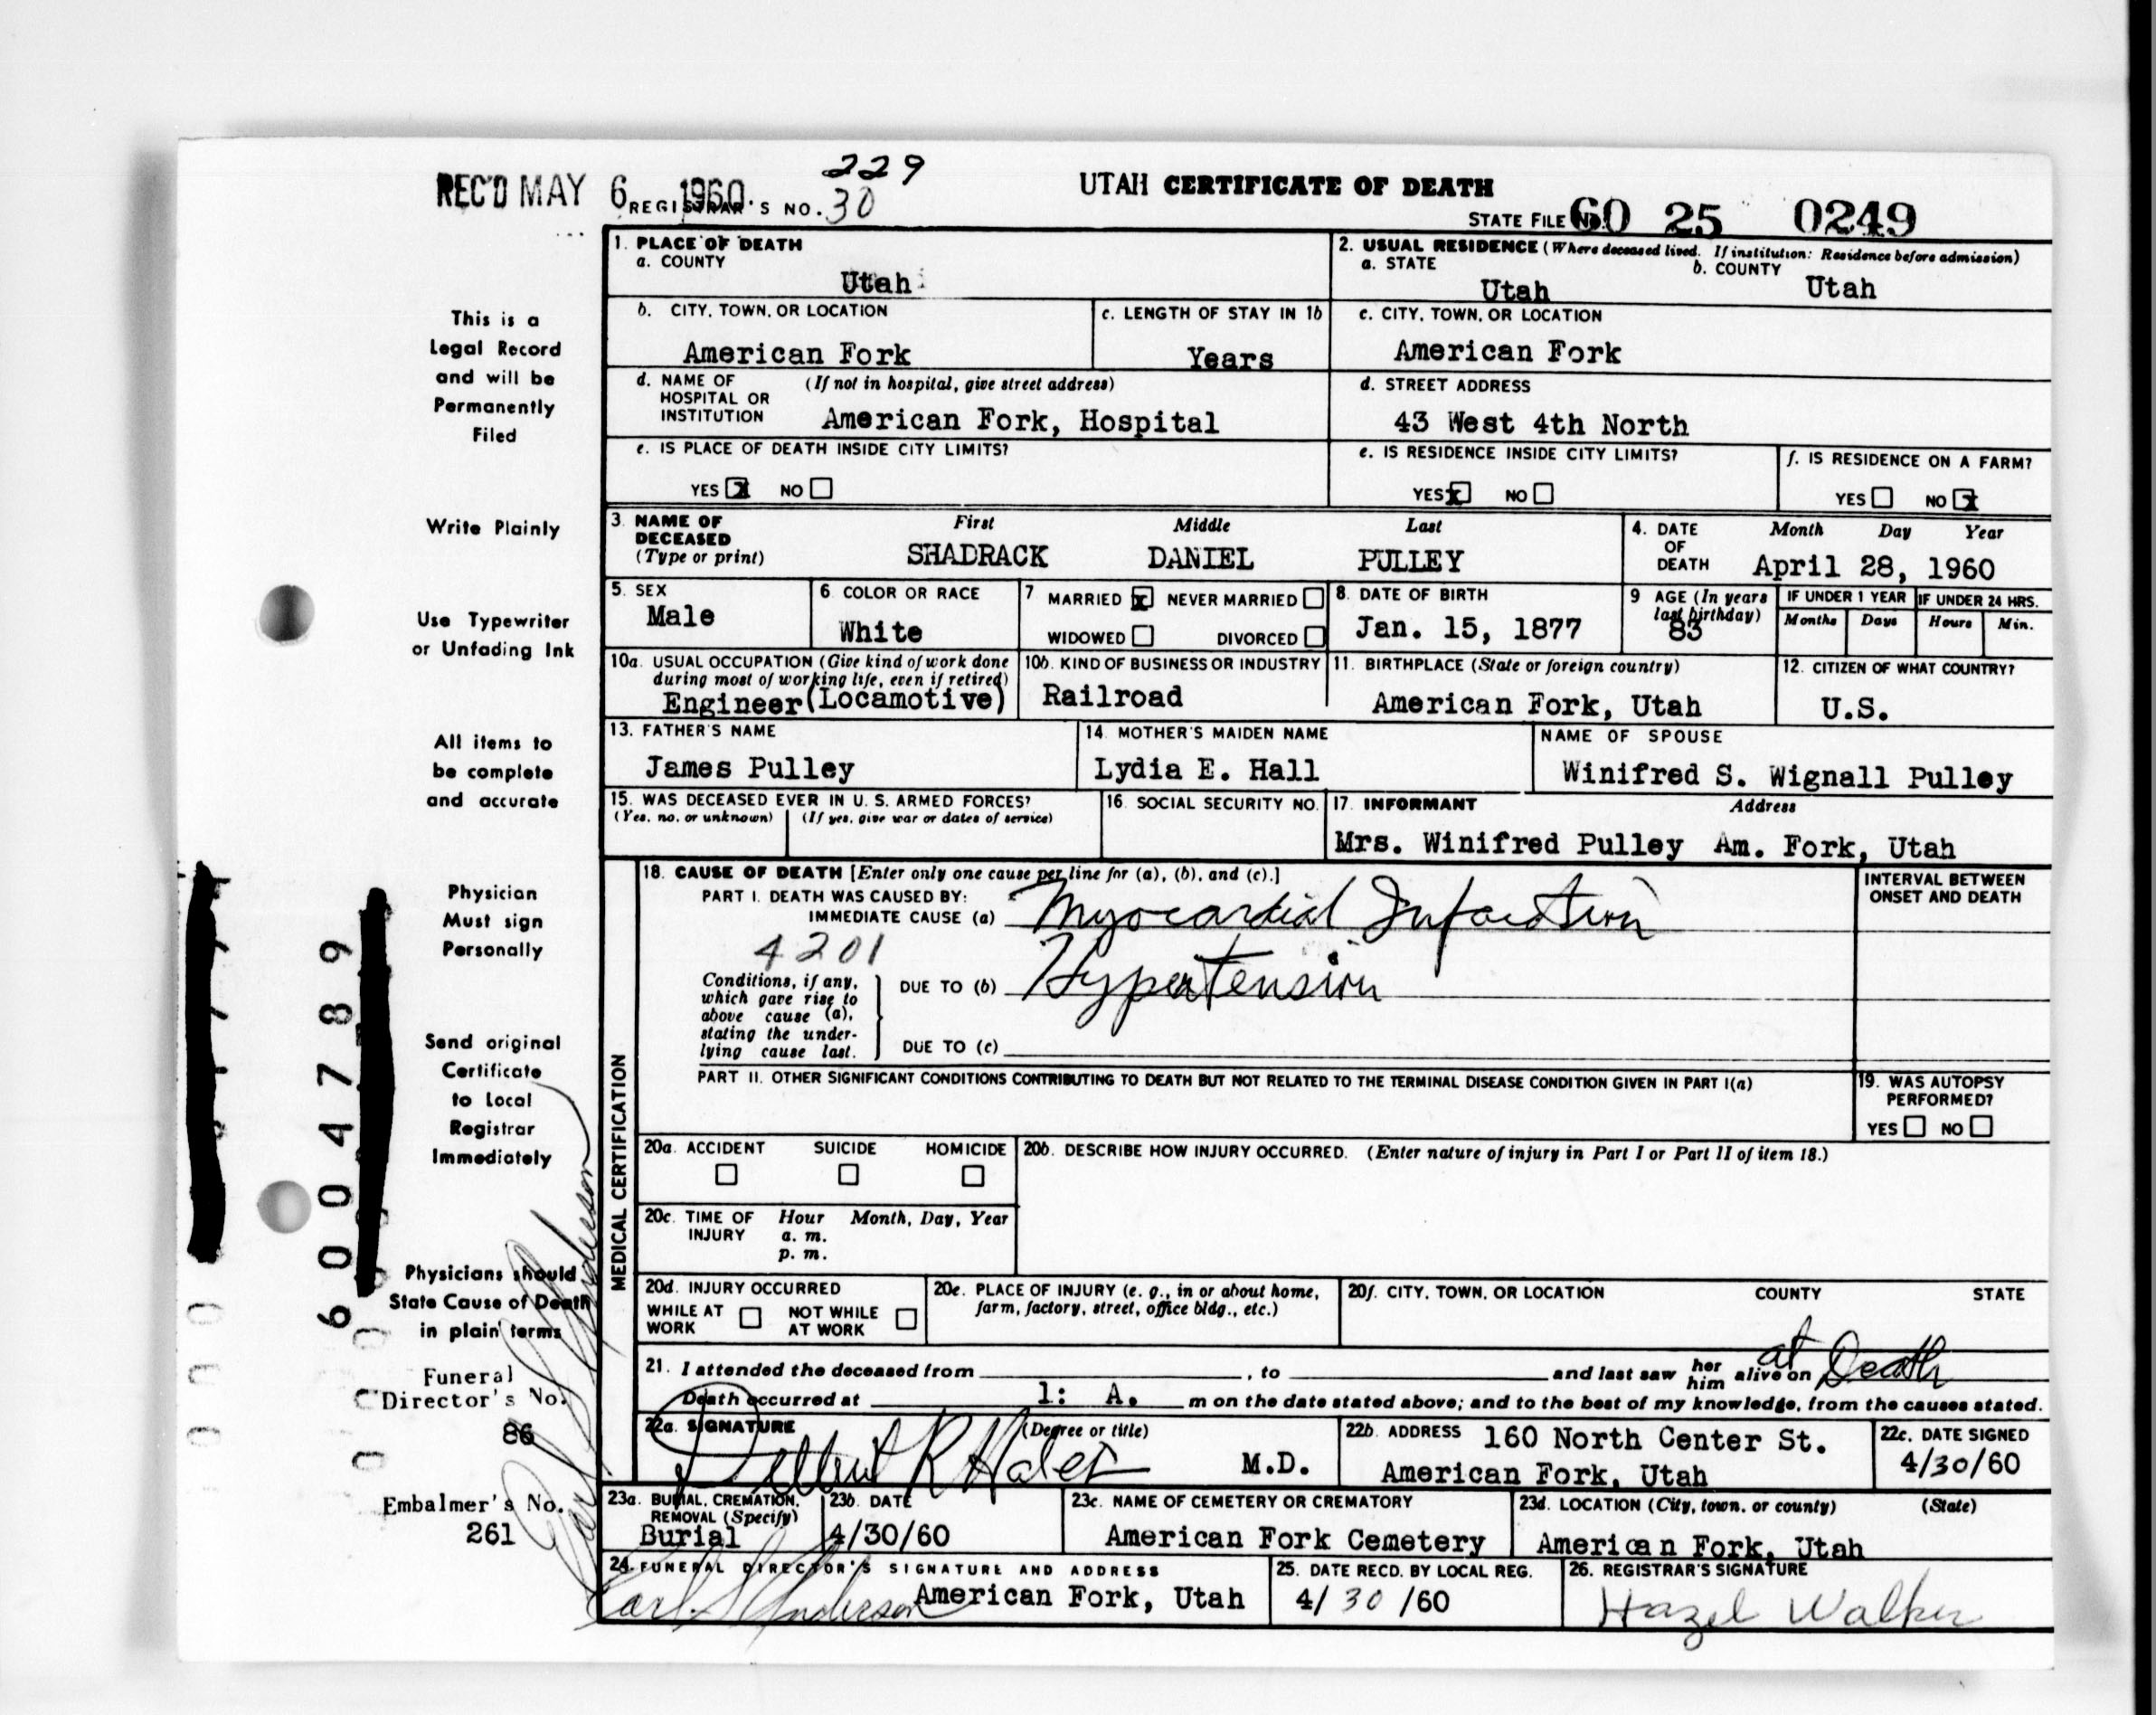 229
REC'D MAY 6 1960
REGISTRAR'S NO. 30
UTAH CERTIFICATE OF DEATH
STATE FILE NO. 60 25 0249
This is a
Legal Record
and will be
Permanently
Filed
Write Plainly
Use Typewriter
or Unfading Ink
All items to
be complete
and accurate
Physician
Must sign
Personally
Send original
Certificate
to Local
Registrar
Immediately
Physicians should
State Cause of Death
in plain terms
Funeral
Director's No.
86
Embalmer's No.
261
6004789
Earl S Anderson
1. PLACE OF DEATH
a. COUNTY
Utah
2. USUAL RESIDENCE (Where deceased lived. If institution: Residence before admission)
a. STATE
Utah
b. COUNTY
Utah
b. CITY, TOWN, OR LOCATION
American Fork
c. LENGTH OF STAY IN 1b
Years
c. CITY, TOWN, OR LOCATION
American Fork
d. NAME OF HOSPITAL OR INSTITUTION (If not in hospital, give street address)
American Fork, Hospital
d. STREET ADDRESS
43 West 4th North
e. IS PLACE OF DEATH INSIDE CITY LIMITS?
YES X NO
e. IS RESIDENCE INSIDE CITY LIMITS?
YES X NO
f. IS RESIDENCE ON A FARM?
YES NO X
3. NAME OF DECEASED (Type or print)
First Middle Last
SHADRACK DANIEL PULLEY
4. DATE OF DEATH
Month Day Year
April 28, 1960
5. SEX
Male
6. COLOR OR RACE
White
7 MARRIED X NEVER MARRIED
WIDOWED DIVORCED
8. DATE OF BIRTH
Jan. 15, 1877
9 AGE (In years last birthday)
83
IF UNDER 1 YEAR
Months Days
IF UNDER 24 HRS.
Hours Min.
10a. USUAL OCCUPATION (Give kind of work done during most of working life, even if retired)
Engineer (Locamotive)
10b. KIND OF BUSINESS OR INDUSTRY
Railroad
11. BIRTHPLACE (State or foreign country)
American Fork, Utah
12. CITIZEN OF WHAT COUNTRY?
U.S.
13. FATHER'S NAME
James Pulley
14. MOTHER'S MAIDEN NAME
Lydia E. Hall
NAME OF SPOUSE
Winifred S. Wignall Pulley
15. WAS DECEASED EVER IN U. S. ARMED FORCES?
(Yes, no, or unknown) (If yes, give war or dates of service)
16. SOCIAL SECURITY NO.
17. INFORMANT Address
Mrs. Winifred Pulley Am. Fork, Utah
MEDICAL CERTIFICATION
18. CAUSE OF DEATH [Enter only one cause per line for (a), (b), and (c).]
INTERVAL BETWEEN ONSET AND DEATH
PART I. DEATH WAS CAUSED BY:
IMMEDIATE CAUSE (a) Myocardial Infarction
4201
Conditions, if any, which gave rise to above cause (a), stating the underlying cause last.
DUE TO (b) Hypertension
DUE TO (c)
PART II. OTHER SIGNIFICANT CONDITIONS CONTRIBUTING TO DEATH BUT NOT RELATED TO THE TERMINAL DISEASE CONDITION GIVEN IN PART I(a)
19. WAS AUTOPSY PERFORMED?
YES NO
20a. ACCIDENT SUICIDE HOMICIDE
20b. DESCRIBE HOW INJURY OCCURRED. (Enter nature of injury in Part I or Part II of item 18.)
20c. TIME OF INJURY Hour Month, Day, Year
a. m.
p. m.
20d. INJURY OCCURRED
WHILE AT WORK NOT WHILE AT WORK
20e. PLACE OF INJURY (e. g., in or about home, farm, factory, street, office bldg., etc.)
20f. CITY, TOWN, OR LOCATION COUNTY STATE
21. I attended the deceased from , to and last saw her him alive on at Death
Death occurred at 1: A. m on the date stated above; and to the best of my knowledge, from the causes stated.
22a. SIGNATURE (Degree or title)
M.D.
22b. ADDRESS 160 North Center St.
American Fork, Utah
22c. DATE SIGNED
4/30/60
23a. BURIAL, CREMATION, REMOVAL (Specify)
Burial
23b. DATE
4/30/60
23c. NAME OF CEMETERY OR CREMATORY
American Fork Cemetery
23d. LOCATION (City, town, or county) (State)
American Fork, Utah
24. FUNERAL DIRECTOR'S SIGNATURE AND ADDRESS
Earl S Anderson American Fork, Utah
25. DATE RECD. BY LOCAL REG.
4/30/60
26. REGISTRAR'S SIGNATURE
Hazel Walker